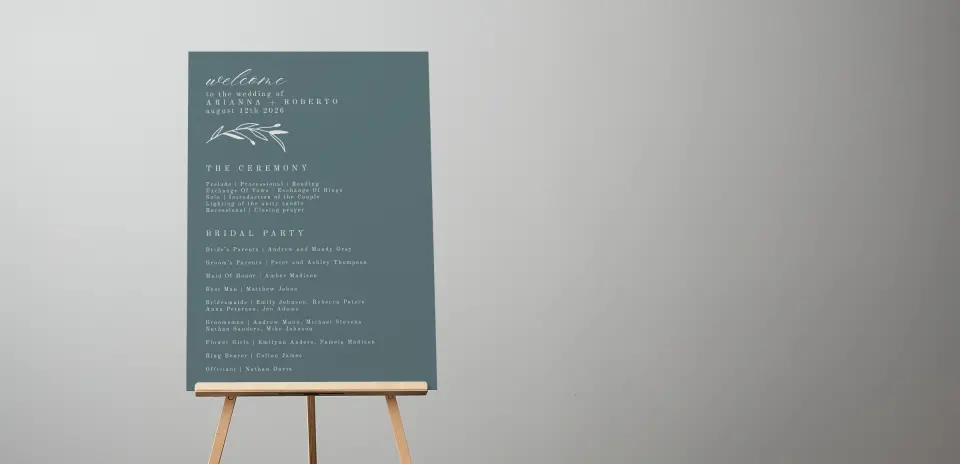 welcome
to the wedding of
ARIANNA + ROBERTO
august 12th 2026
THE CEREMONY
Prelude | Processional | Reading
Exchange Of Vows | Exchange Of Rings
Solo | Introduction of the Couple
Lighting of the unity candle
Recessional | Closing prayer
BRIDAL PARTY
Bride's Parents | Andrew and Mandy Gray
Groom's Parents | Peter and Ashley Thompson
Maid Of Honor | Amber Madison
Best Man | Matthew Johns
Bridesmaids | Emily Johnson, Rebecca Peters
Anna Peterson, Jen Adams
Groomsmen | Andrew Mann, Michael Stevens
Nathan Sanders, Mike Johnson
Flower Girls | Emilynn Anders, Pamela Madison
Ring Bearer | Colton James
Officiant | Nathan Davis